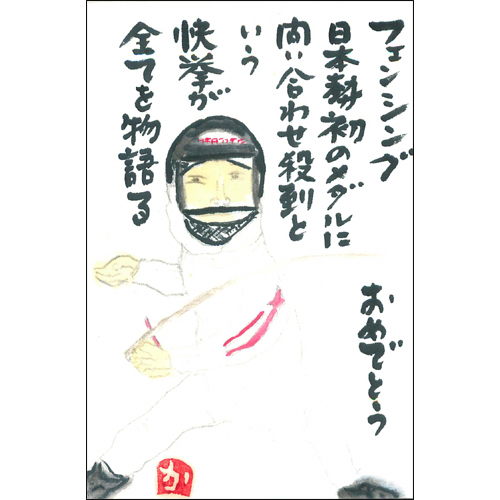 フェンシング
日本勢初のメダルに
問い合わせ殺到と
いう
快挙が
全てを物語る
おめでとう
か